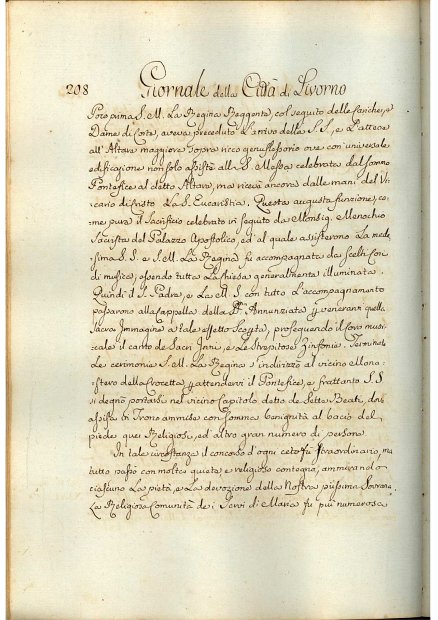 208 Giornale della Città di Livorno
Poco prima S. M. La Regina Reggente, col seguito delle Cariche, e
Dame di Corte, aveva preceduto L'arrivo della S. S., e L'attese
all'Altare maggiore sopra ricco genuflessorio ove con universale
edificazione non solo assistè alla S. Messa celebrata dal sommo
Pontefice al detto Altare, ma ricevè ancora dalle mani del Vi
cario di Cristo La S. Eucaristia. Questa augusta funzione, co,
me pure il Sacrificio celebrato in seguito da Monsig. Menochio
Sacrista del Palazzo Apostolico, ed al quale assisterono La mede
sima S. S. e S. M. La Regina fu accompagnata da scelti con
di musica, essendo tutta La Chiesa generalmente illuminata.
Quindi il S. Padre, e La M. S. con tutto L'accompagnamento
passarono alla Cappella della SS. Annunziata p venerare quella
Sacra Immagine a tale effetto Scoperta, proseguendo il Coro musi
cale il canto de Sacri Inni, e Le strepitose Zinfonie. Terminate
Le cerimonie S. M. La Regina s'indirizzò al vicino Mona
stero della Crocetta p attendervi il Pontefice, e frattanto S. S.
si degnò portarsi nel vicino Capitolo detto de Sette Beati, dove
assisa in Trono ammise con somma benignità al bacio del
piede quei Religiosi, ed altro gran numero di persone.
In tale circostanza il concorso d'ogni ceto fu straordinario, ma
tutto passò con molta quiete, e religioso contegno, ammirando
ciascuno La pietà, e La devozione della Nostra piissima Sovrana.
La Religiosa Comunità de i Servi di Maria fu più numerosa